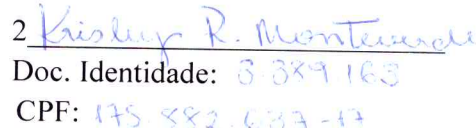 2 Krisley R. Monteverde
Doc. Identidade: 3.389 163
CPF: 175.882.637-17